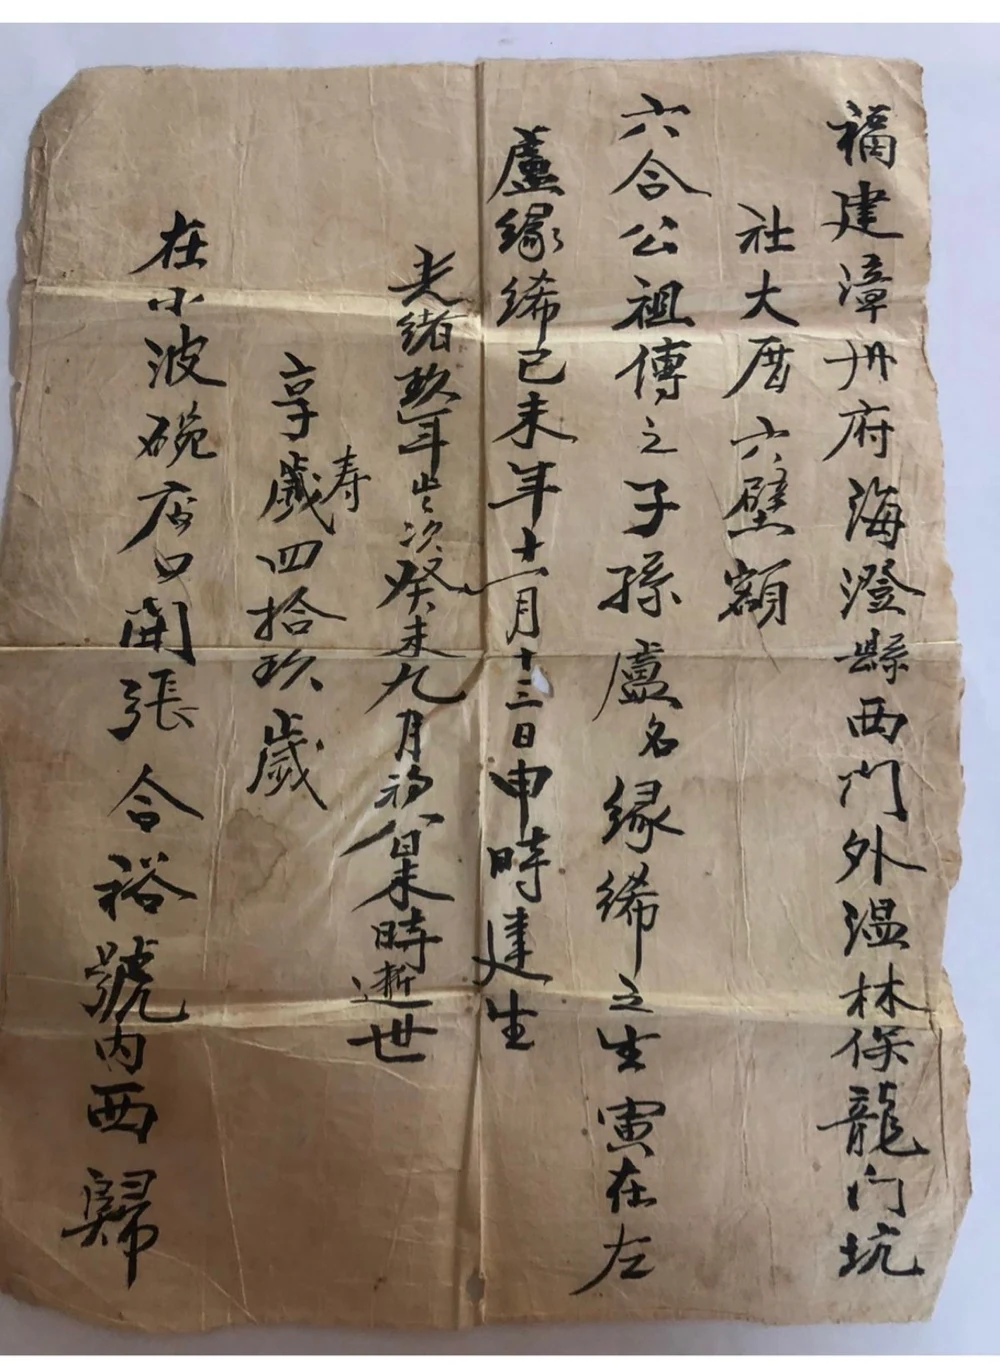 福建漳州府海澄縣西門外温林保龍门坑
社大厝六壁額
六合公祖傳之子孫盧名緣绨之生寅在左
盧緣绨已未年十一月十三日申時建生
光緒玖年歲次癸未九月初八日未時逝世
享寿歲四拾玖歲
在小波碗店口開張合裕號内西歸